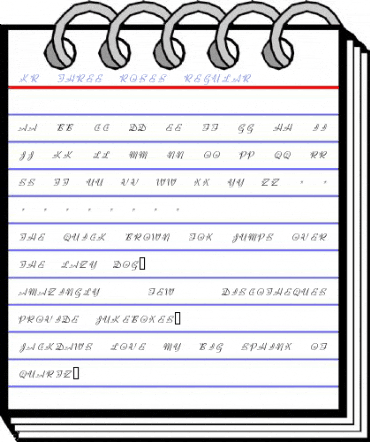 KR THREE ROSES REGULAR
AA BB CC DD EE FF GG HH II
JJ KK LL MM NN OO PP QQ RR
SS TT UU VV WW XX YY ZZ
THE QUICK BROWN FOX JUMPS OVER
THE LAZY DOG
AMAZINGLY FEW DISCOTHEQUES
PROVIDE JUKEBOXES
JACKDAWS LOVE MY BIG SPHINX OF
QUARTZ